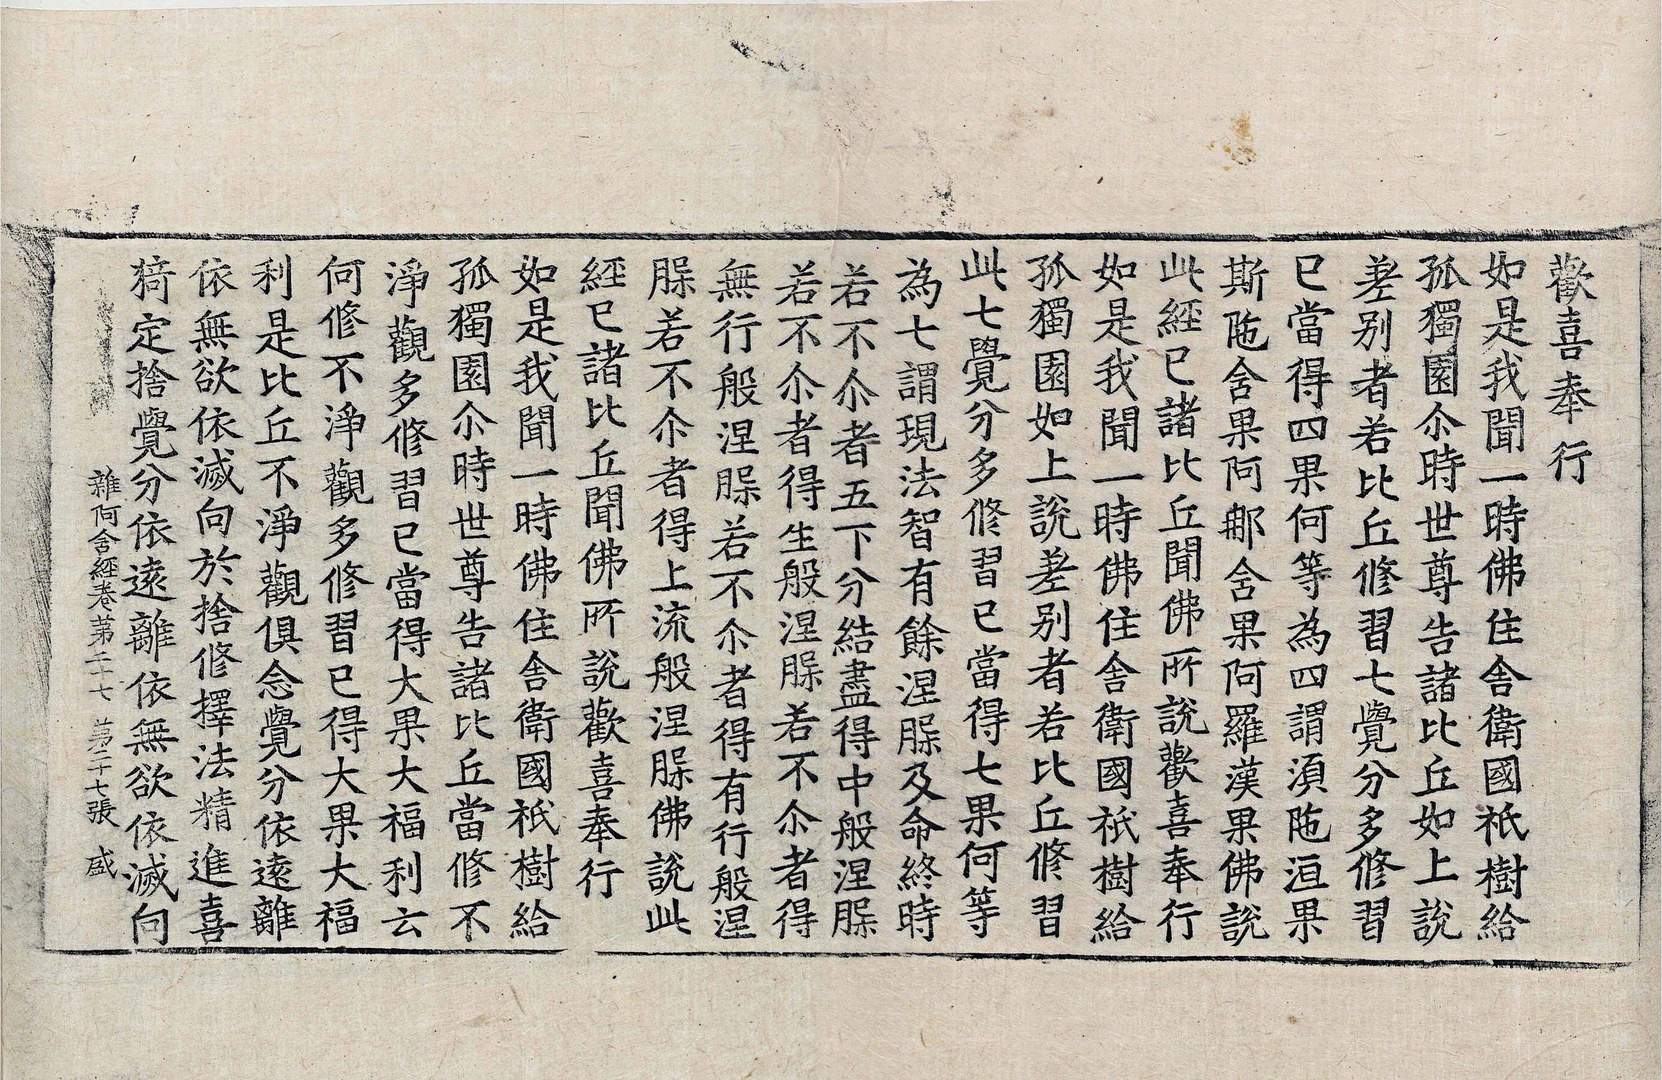 歡喜奉行
如是我聞一時佛住舍衛國祇樹給
孤獨園尒時世尊告諸比丘如上說
差別者若比丘修習七覺分多修習
已當得四果何等為四謂湏陁洹果
斯陁含果阿那含果阿羅漢果佛說
此經已諸比丘聞佛所說歡喜奉行
如是我聞一時佛住舍衛國祇樹給
孤獨園如上說差別者若比丘修習
此七覺分多修習已當得七果何等
為七謂現法智有餘涅槃及命終時
若不尒者五下分結盡得中般涅槃
若不尒者得生般涅槃若不尒者得
無行般涅槃若不尒者得有行般涅
槃若不尒者得上流般涅槃佛說此
經已諸比丘聞佛所說歡喜奉行
如是我聞一時佛住舍衛國祇樹給
孤獨園尒時世尊告諸比丘當修不
淨觀多修習已當得大果大福利云
何修不淨觀多修習已得大果大福
利是比丘不淨觀俱念覺分依遠離
依無欲依滅向於捨修擇法精進喜
猗定捨覺分依遠離依無欲依滅向
雜阿含經卷第二十七 第二十七張 盛